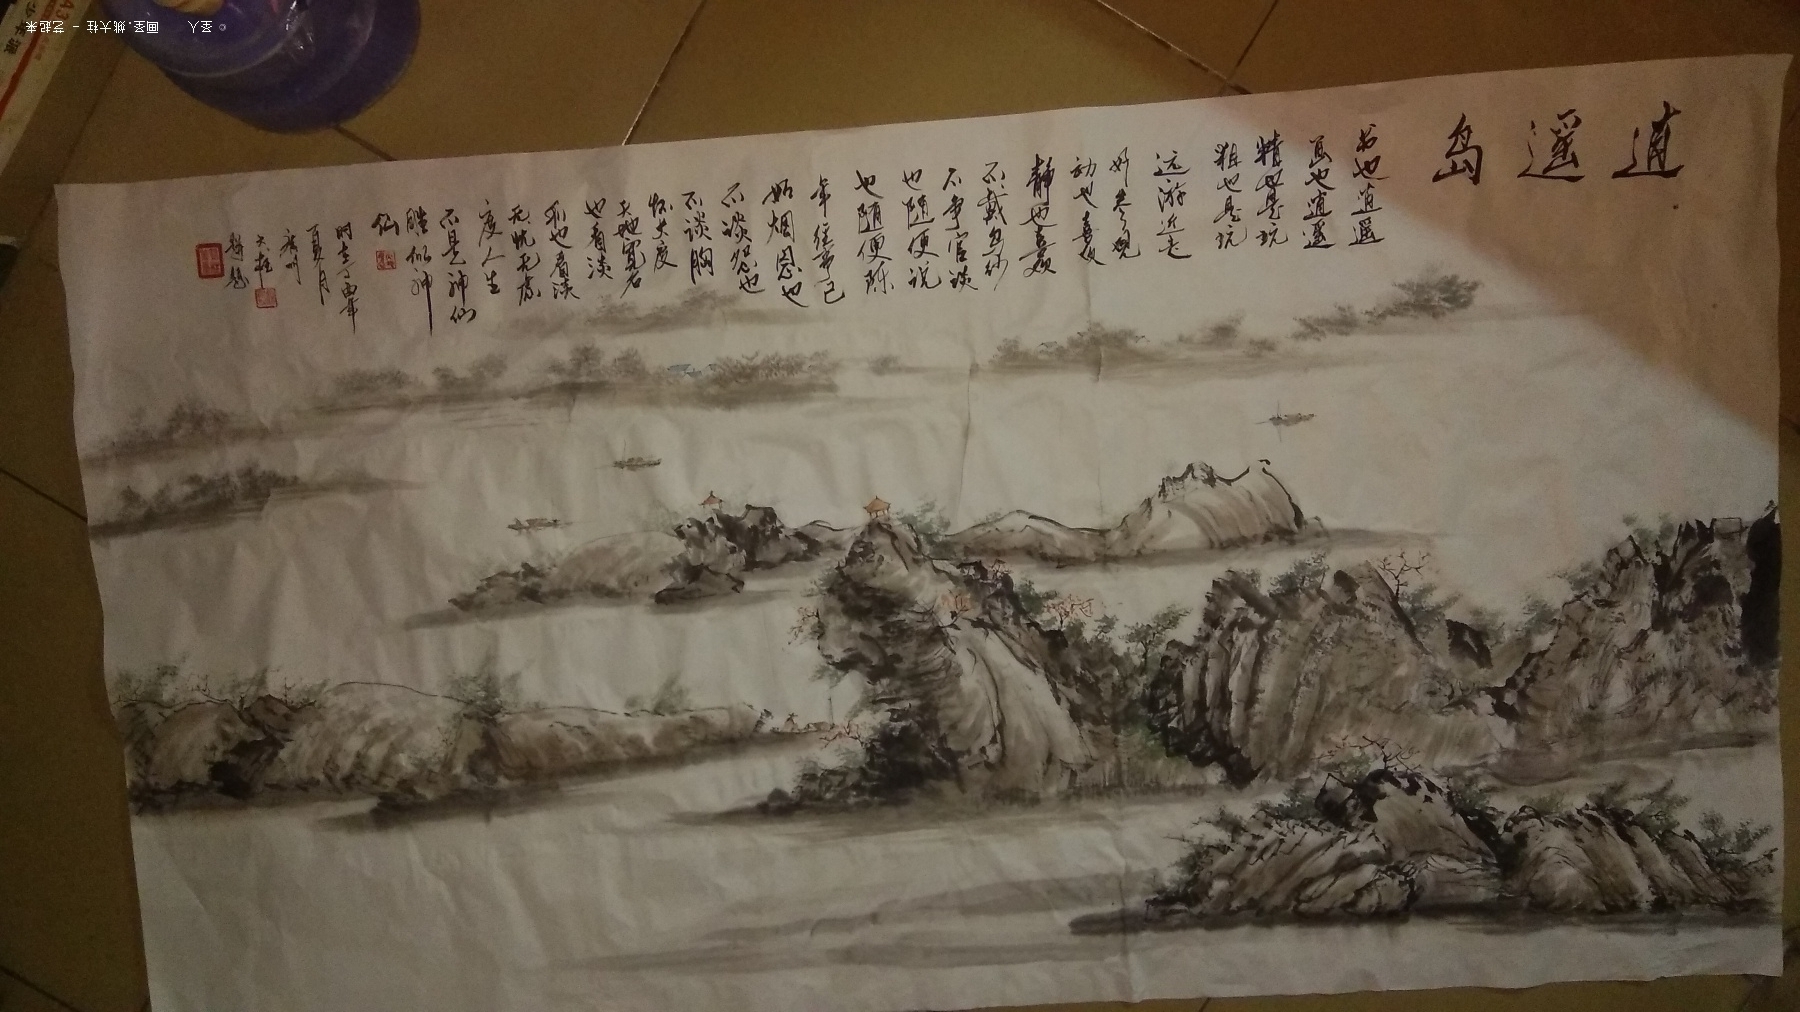 逍遥岛
书也逍遥
画也逍遥
精也是玩
粗也是玩
远游近走
好景观
动也喜欢
静也喜欢
不戴乌纱
不争官谈
也随便说
也随便陈
年往事已
如烟恩也
不谈怨也
不谈胸
怀大度
天地宽名
也看淡
利也看淡
无忧无虑
度人生
不是神仙
胜似神
仙
时在丁酉年
夏月
大柱